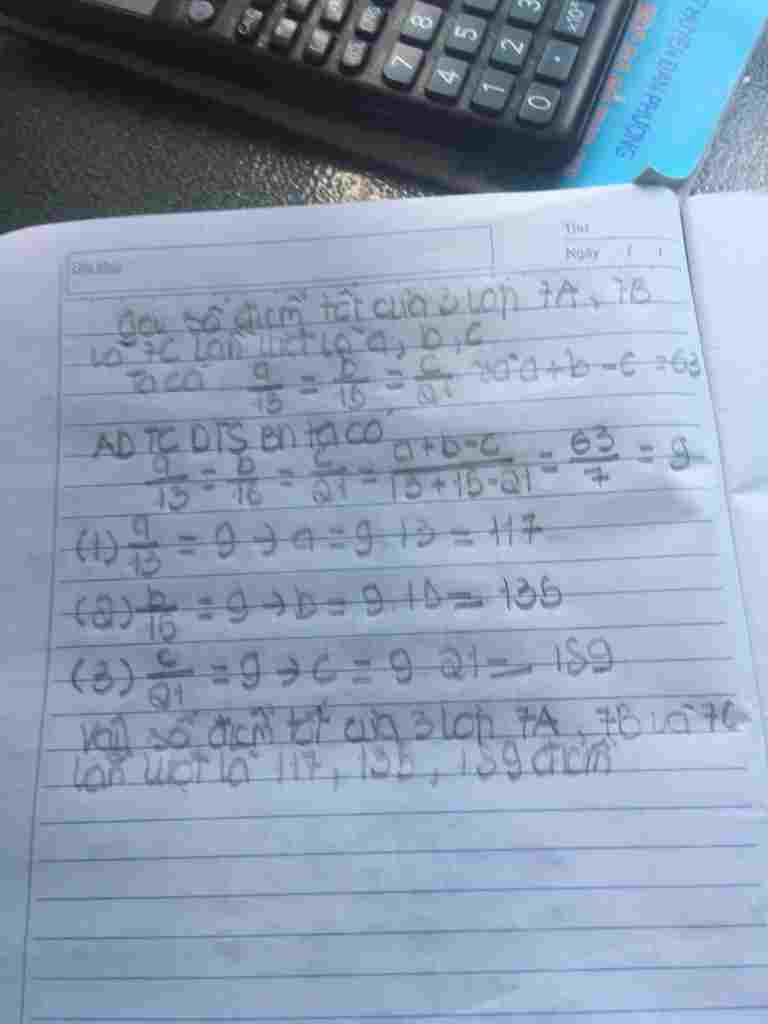 8
5
2
3
7
4
1
.
0
×10ˣ
HUYỆN ĐAN PHƯỢNG
Thứ
Ngày / /
Gọi số điểm tốt của 3 lớp 7A, 7B
và 7C lần lượt là a, b, c
Ta có a/13 = b/15 = c/21 và a+b-c = 63
AD TC DTS BN ta có
a/13 = b/15 = c/21 = a+b-c/13+15-21 = 63/7 = 9
(1) a/13 = 9 → a = 9.13 = 117
(2) b/15 = 9 → b = 9.15 = 135
(3) c/21 = 9 → c = 9.21 = 189
Vậy số điểm tốt của 3 lớp 7A, 7B và 7C
lần lượt là 117, 135, 189 điểm